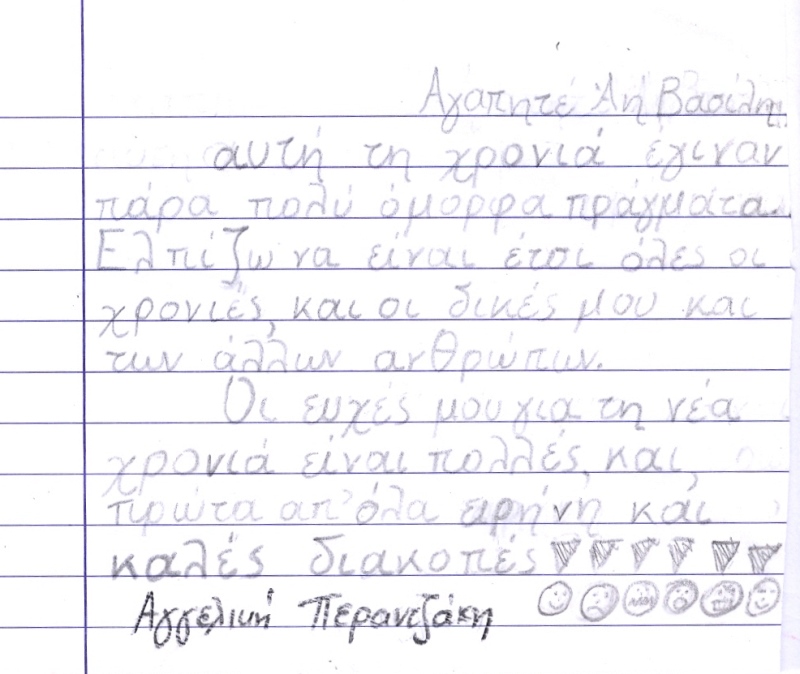 Αγαπητέ Άη Βασίλη,
αυτή τη χρονιά έγιναν
πάρα πολύ όμορφα πράγματα.
Ελπίζω να είναι έτσι όλες οι
χρονιές, και οι δικές μου και
των άλλων ανθρώπων.
Οι ευχές μου για τη νέα
χρονιά είναι πολλές, και,
πρώτα απ' όλα ειρήνη και
καλές διακοπές
Αγγελική Περαντζάκη